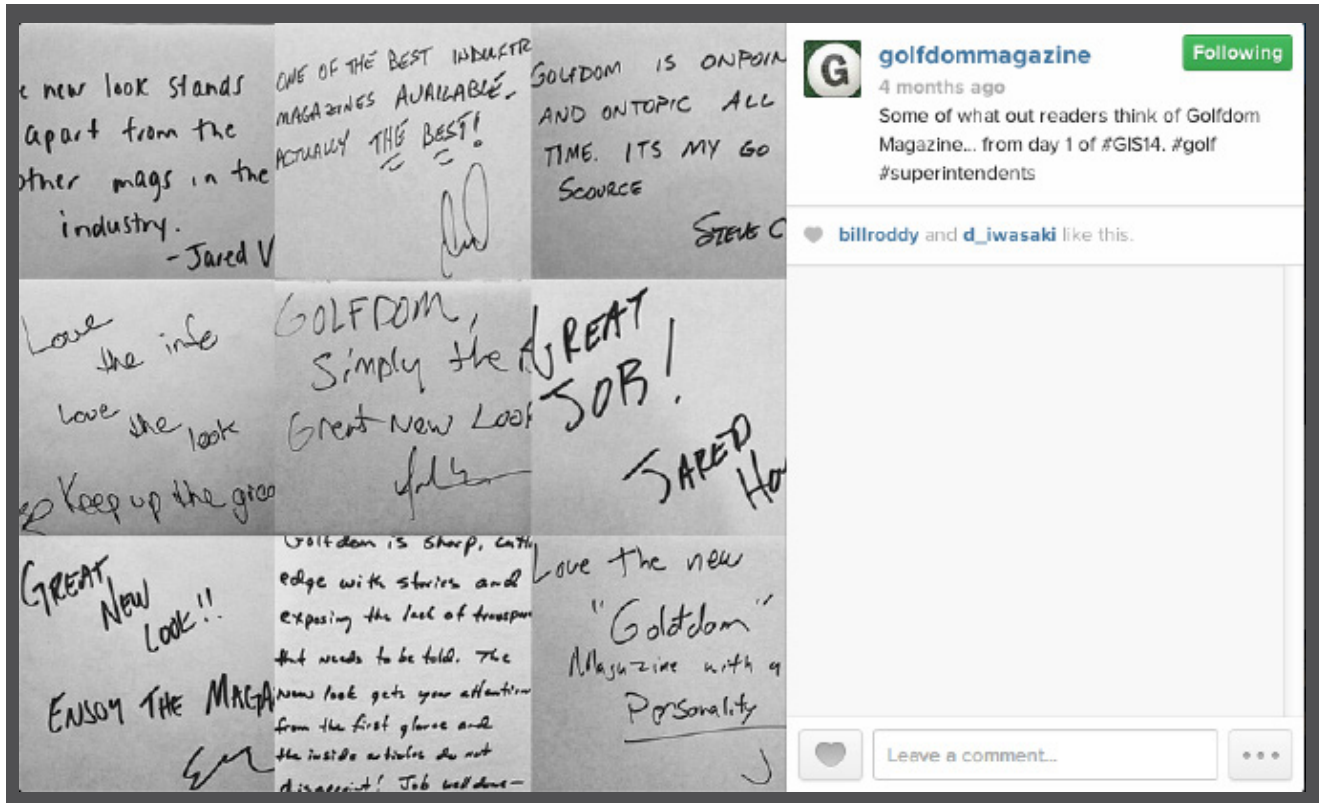 e new look stands
apart from the
other mags in the
industry.
- Jared V
ONE OF THE BEST INDUSTR
MAGAZINES AVAILABLE.
ACTUALLY THE BEST!
GOLFDOM IS ONPOIN
AND ONTOPIC ALL
TIME. ITS MY GO
SCOURCE
STEVE C
Love
the info
Love
the look
Keep up the grea
GOLFDOM,
Simply the
Great New Look
GREAT
JOB!
JARED
Ho
GREAT
NEW
LOOK!!
ENJOY THE MAGA
Golfdom is sharp, cutti
edge with stories and
exposing the lack of transpar
that needs to be told. The
New look gets your attention
from the first glance and
the inside articles do not
disappoint! Job well done-
Love the new
"Golfdom"
Magazine with a
Personality
J
G
golfdommagazine
Following
4 months ago
Some of what out readers think of Golfdom
Magazine... from day 1 of #GIS14. #golf
#superintendents
billroddy and d_iwasaki like this.
Leave a comment...